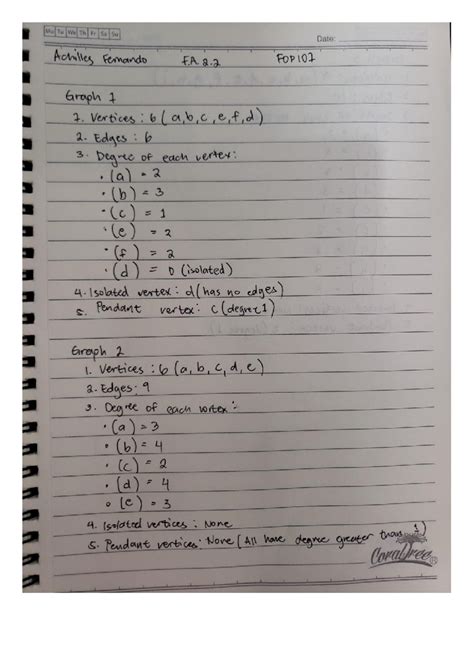 Mo Tu We Th Fr Sa Su
Date:
Achilles Fernando F.A 2.2 FOP107
Graph 1
1. Vertices : 6 ( a, b, c, e, f, d )
2. Edges : 6
3. Degree of each vertex :
• (a) = 2
• (b) = 3
• (c) = 1
• (e) = 2
• (f) = 2
• (d) = 0 (isolated)
4. Isolated vertex : d (has no edges)
5. Pendant vertex : c (degree 1)
Graph 2
1. Vertices : 6 (a, b, c, d, e)
2. Edges : 9
3. Degree of each vertex :
• (a) = 3
• (b) = 4
• (c) = 2
• (d) = 4
• (e) = 3
4. Isolated vertices : None
5. Pendant vertices : None ( All have degree greater than 1)
CoralTree